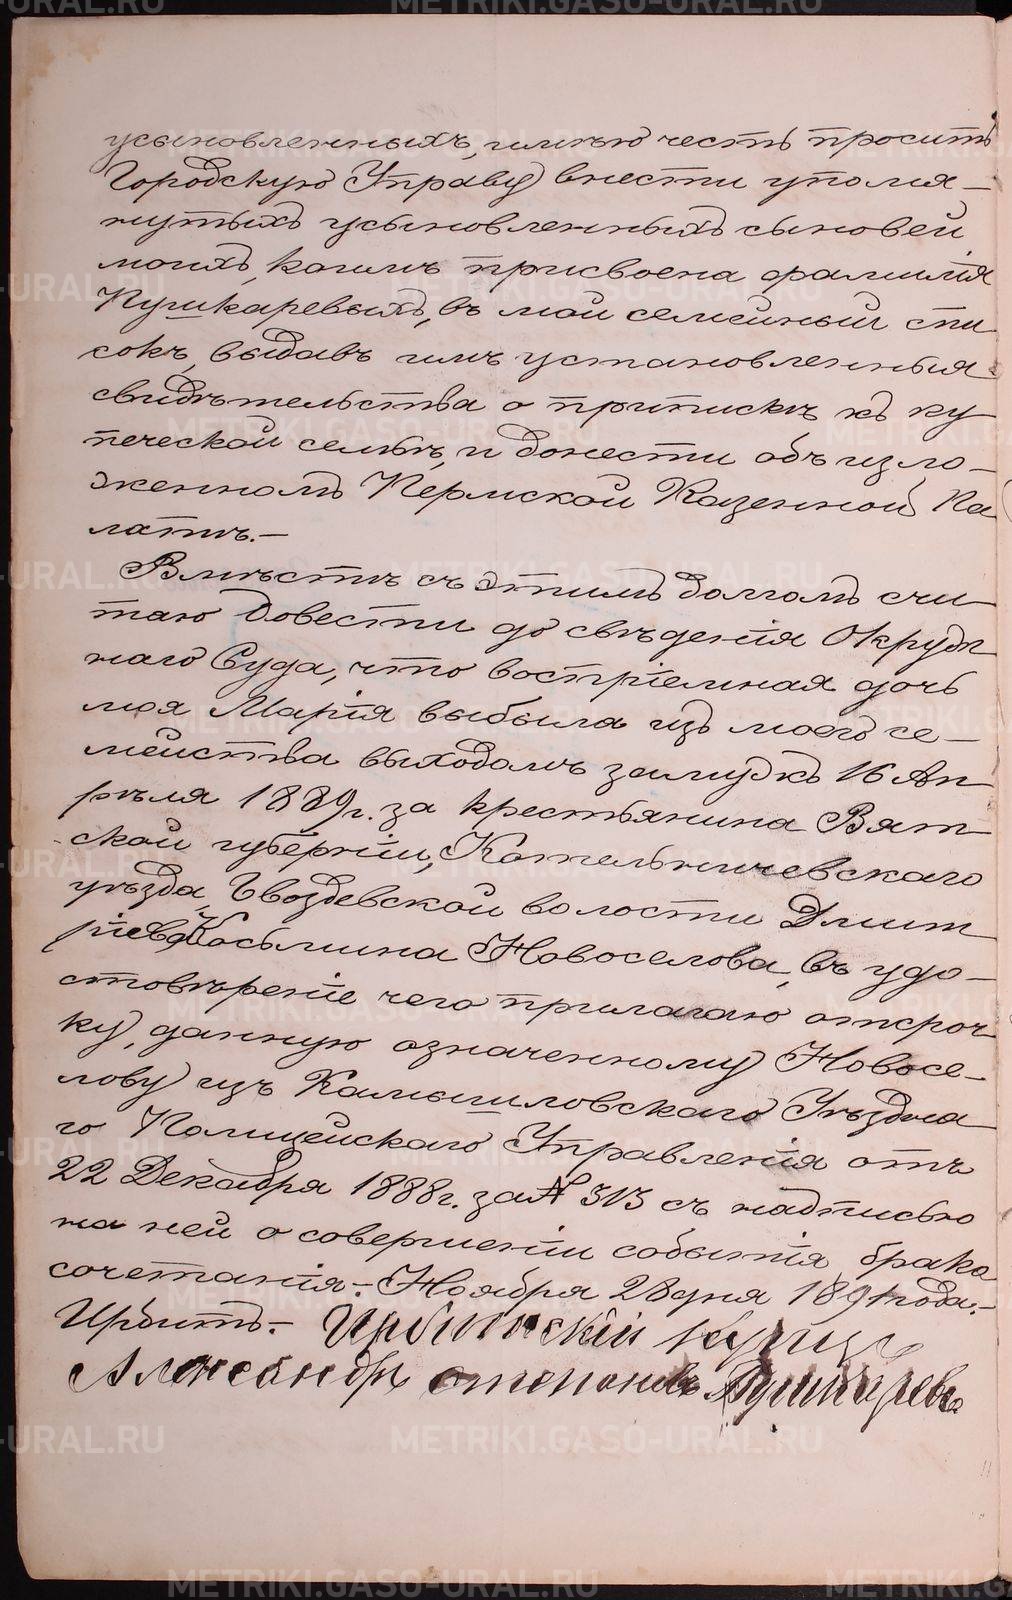 усыновленныхъ, имѣю честь просить
Городскую Управу внести упомя-
нутыхъ усыновленныхъ сыновей
моихъ, коимъ присвоена фамилія
Пушкаревыхъ, въ мой семейный спи
сокъ, выдавъ имъ установленныя
свидѣтельства о припискѣ къ ку
печеской семьѣ, и донести объ изло-
женномъ Пермской Казенной Па
латѣ.-
Вмѣстѣ съ этимъ долгомъ счи
таю довести до свѣденія Окруж
наго Суда, что востріемная дочь
моя Марія выбыла изъ моего се-
мейства выходомъ замужъ 16 Ап
рѣля 1889 г. за крестьянина Вят
ской губерніи, Котельничевскаго
уѣзда, Гвоздевской волости Дмит
рія Косьмина Новоселова, въ удо-
стовѣреніе чего прилагаю отсроч
ку, данную означенному Новосе-
лову изъ Камышловскаго Уѣздна
го Полицейскаго Управленія отъ
22 Декабря 1888 г. за № 313 съ надписью
на ней о совершеніи событія брако
сочетанія.- Ноября 28 дня 1891 года.-
Ирбитъ.- Ирбитскій купецъ
Александръ степановъ Пушкаревъ
METRIKI.GASO-URAL.RU